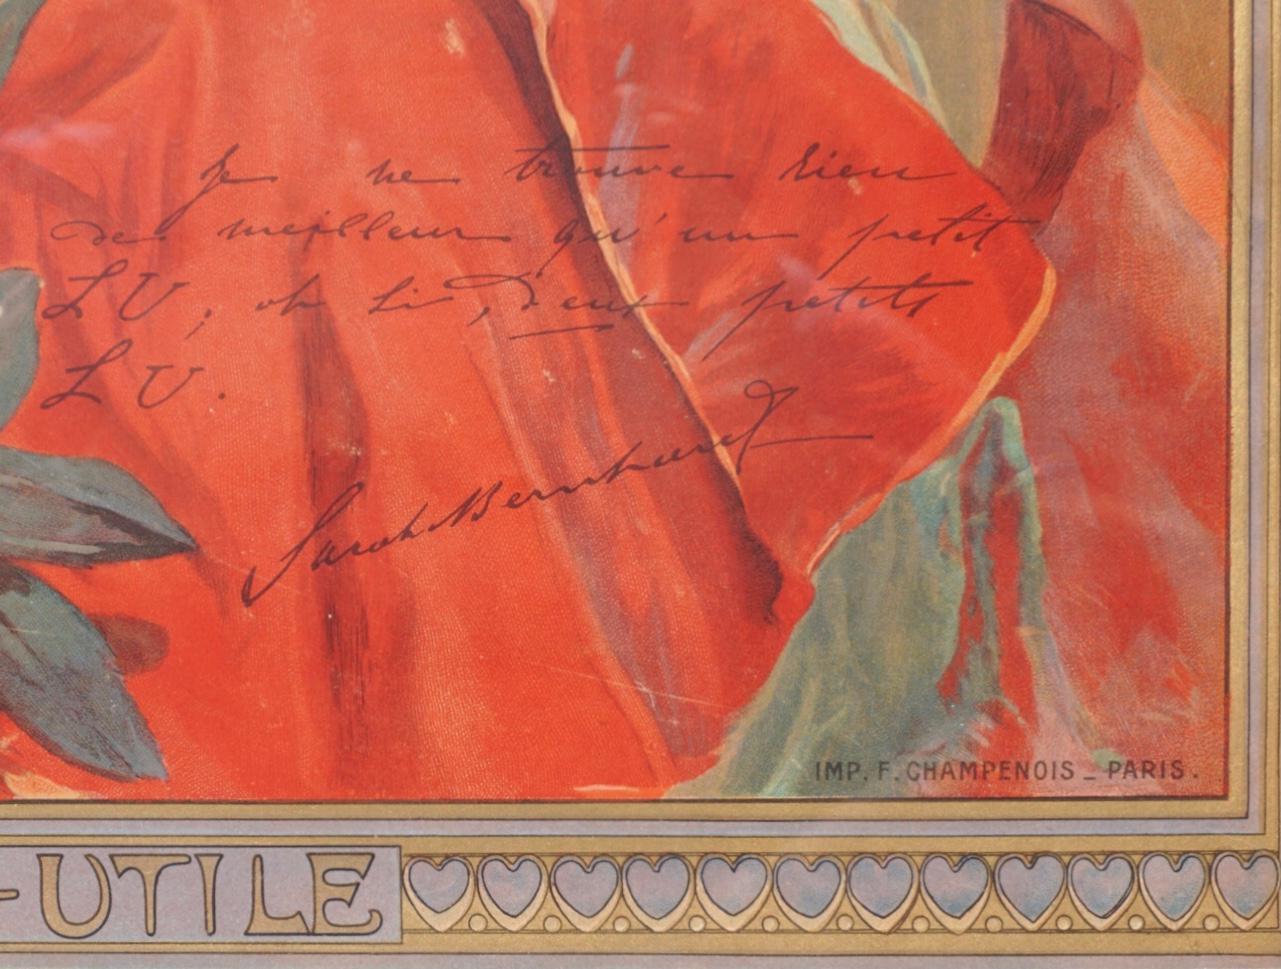 Je ne trouve rien
de meilleur qu'un petit
LU, oh si, deux petits
LU.
Sarah Bernhardt
IMP. F. CHAMPENOIS _ PARIS.
-UTILE